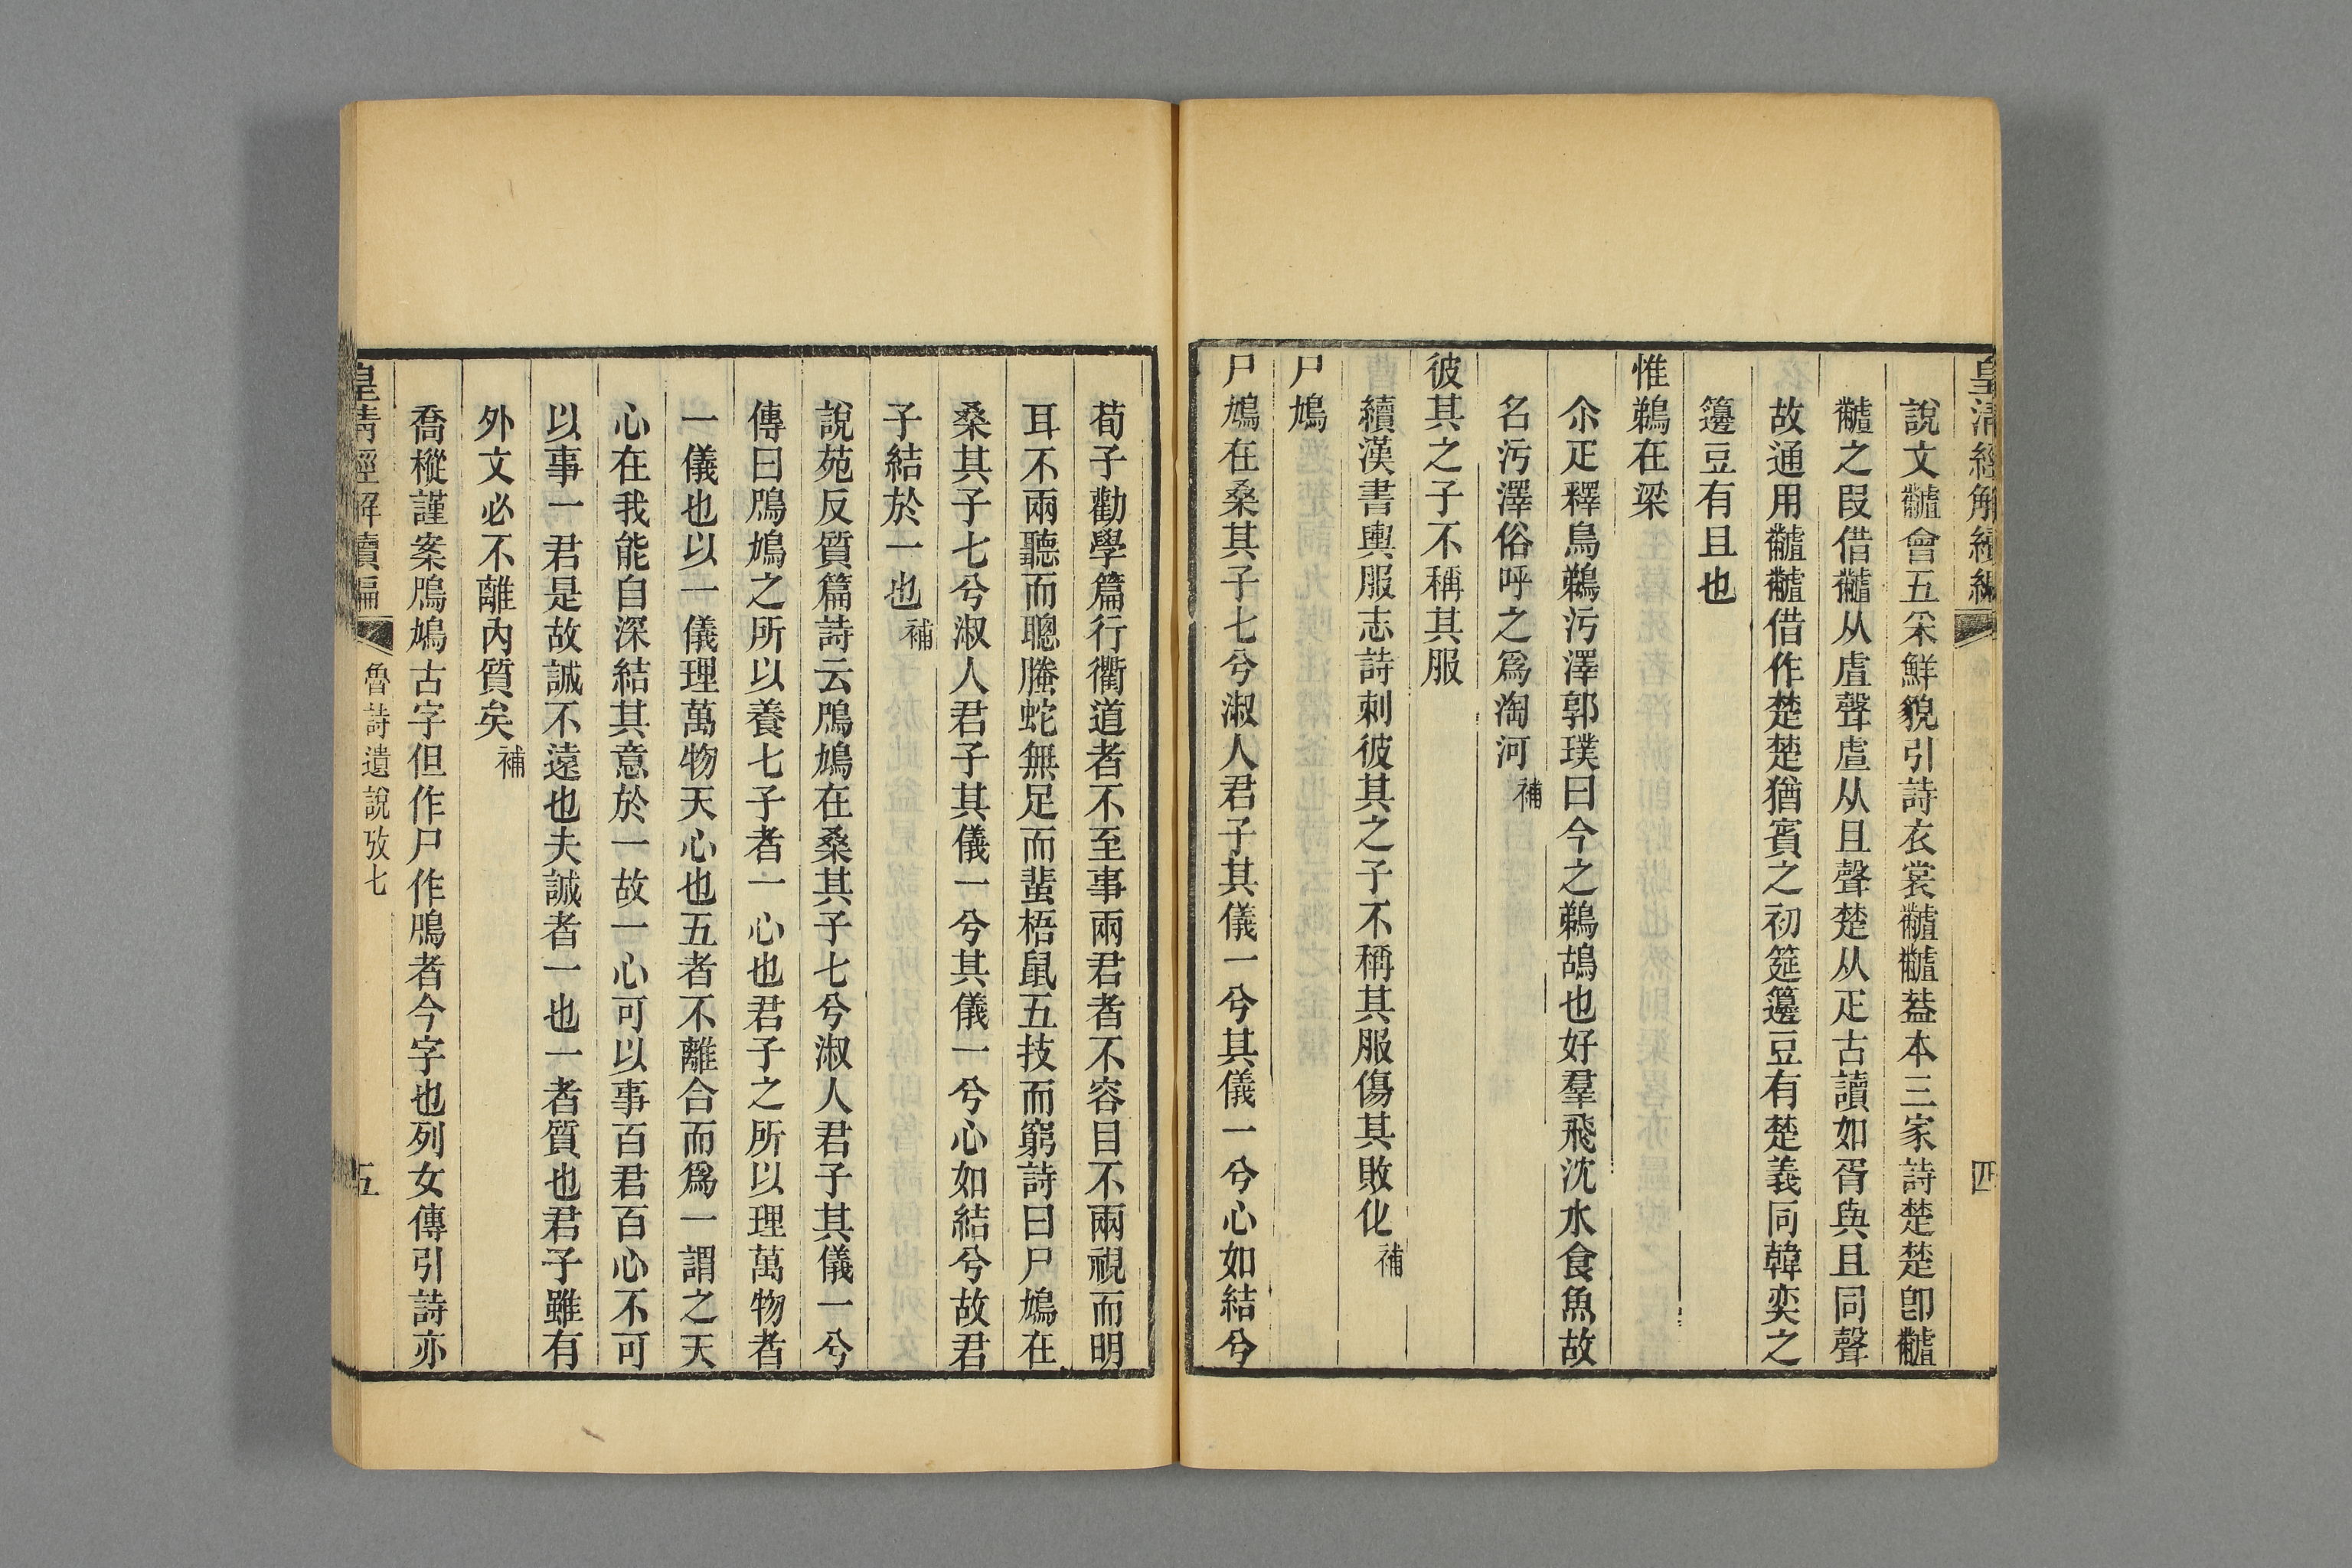 皇清經解續編
四
說文䵝會五采鮮貌引詩衣裳䵝䵝葢本三家詩楚楚卽䵝
䵝之叚借䵝从虘聲虘从且聲楚从疋古讀如胥與且同聲
故通用䵝䵝借作楚楚猶賓之初筵籩豆有楚義同韓奕之
籩豆有且也
惟鵜在梁
尒疋釋鳥鵜污澤郭璞曰今之鵜鴣也好羣飛沈水食魚故
名污澤俗呼之爲淘河補
彼其之子不稱其服
續漢書輿服志詩刺彼其之子不稱其服傷其敗化補
尸鳩
尸鳩在桑其子七兮淑人君子其儀一兮其儀一兮心如結兮
荀子勸學篇行衢道者不至事兩君者不容目不兩視而明
耳不兩聽而聰螣蛇無足而蜚梧鼠五技而窮詩曰尸鳩在
桑其子七兮淑人君子其儀一兮其儀一兮心如結兮故君
子結於一也補
說苑反質篇詩云鳲鳩在桑其子七兮淑人君子其儀一兮
傳曰鳲鳩之所以養七子者一心也君子之所以理萬物者
一儀也以一儀理萬物天心也五者不離合而爲一謂之天
心在我能自深結其意於一故一心可以事百君百心不可
以事一君是故誠不遠也夫誠者一也一者質也君子雖有
外文必不離內質矣補
喬樅謹案鳲鳩古字但作尸作鳲者今字也列女傳引詩亦
皇清經解續編
魯詩遺說攷七
五